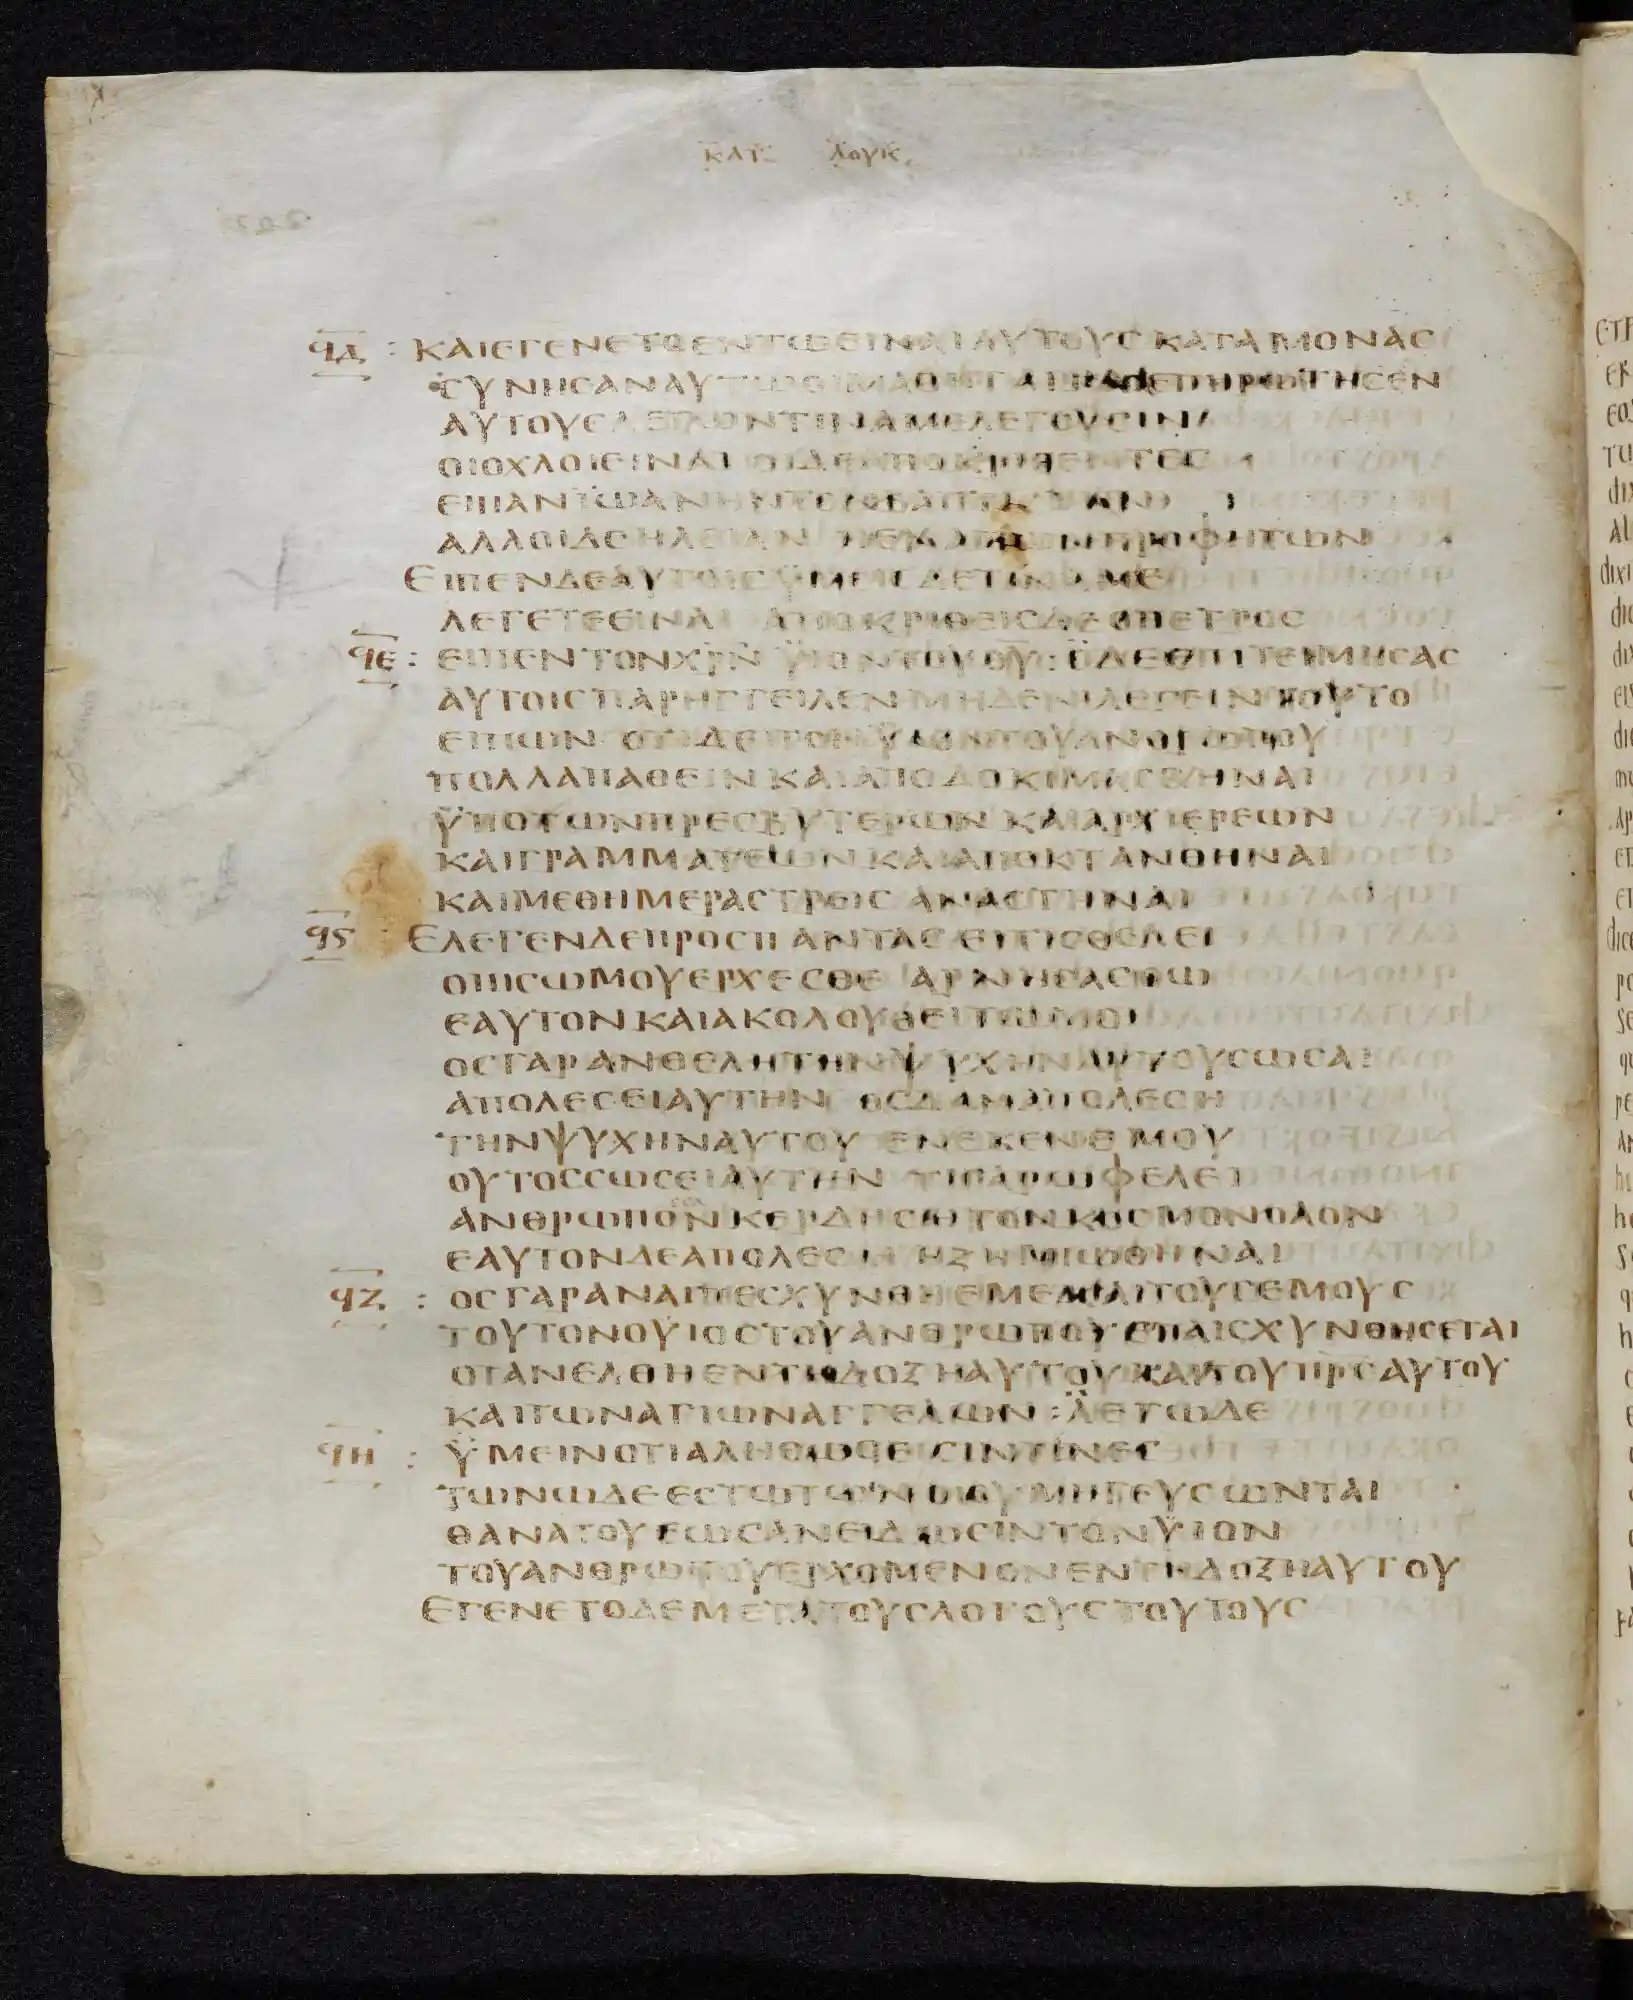 ΚΑΤ ΛΟΥΚ
ϞΔ : ΚΑΙΕΓΕΝΕΤΟΕΝΤΩΕΙΝΑΙΑΥΤΟΥΣ ΚΑΤΑΜΟΝΑΣ
ΣΥΝΗΣΑΝΑΥΤΩΟΙΜΑΘΗΤΑΙΚΑΙΕΠΗΡΩΤΗΣΕΝ
ΑΥΤΟΥΣΛΕΓΩΝΤΙΝΑΜΕΛΕΓΟΥΣΙΝ
ΟΙΟΧΛΟΙΕΙΝΑΙ ΟΙΔΕΑΠΟΚΡΙΘΕΝΤΕΣ
ΕΙΠΑΝΪΩΑΝΗΝΤΟΝΒΑΠΤΙΣΤΗΝ
ΑΛΛΟΙΔΕΗΛΕΙΑΝ ΗΕΝΑΤΩΝΠΡΟΦΗΤΩΝ
ΕΙΠΕΝΔΕΑΥΤΟΙΣΫΜΕΙΣΔΕΤΙΝΑΜΕ
ΛΕΓΕΤΕΕΙΝΑΙ ΑΠΟΚΡΙΘΕΙΣΔΕΟΠΕΤΡΟΣ
ϞΕ : ΕΙΠΕΝΤΟΝΧΡΝ ΫΙΟΝΤΟΥΘΥ : ΟΔΕΕΠΙΤΕΙΜΗΣΑΣ
ΑΥΤΟΙΣΠΑΡΗΓΓΕΙΛΕΝΜΗΔΕΝΙΛΕΓΕΙΝΤΟΥΤΟ
ΕΙΠΩΝ ΟΤΙΔΕΙΤΟΝΫΙΟΝΤΟΥΑΝΘΡΩΠΟΥ
ΠΟΛΛΑΠΑΘΕΙΝΚΑΙΑΠΟΔΟΚΙΜΑΣΘΗΝΑΙ
ΫΠΟΤΩΝΠΡΕΣΒΥΤΕΡΩΝ ΚΑΙΑΡΧΙΕΡΕΩΝ
ΚΑΙΓΡΑΜΜΑΤΕΩΝΚΑΙΑΠΟΚΤΑΝΘΗΝΑΙ
ΚΑΙΜΕΘΗΜΕΡΑΣΤΡΕΙΣ ΑΝΑΣΤΗΝΑΙ
ϞϚ : ΕΛΕΓΕΝΔΕΠΡΟΣΠΑΝΤΑΣ ΕΙΤΙΣΘΕΛΕΙ
ΟΠΙΣΩΜΟΥΕΡΧΕΣΘΕ ΑΡΝΗΣΑΣΘΩ
ΕΑΥΤΟΝΚΑΙΑΚΟΛΟΥΘΕΙΤΩΜΟΙ
ΟΣΓΑΡΑΝΘΕΛΗΤΗΝΨΥΧΗΝΑΥΤΟΥΣΩΣΑΙ
ΑΠΟΛΕΣΕΙΑΥΤΗΝ ΟΣΔΑΝΑΠΟΛΕΣΗ
ΤΗΝΨΥΧΗΝΑΥΤΟΥ ΕΝΕΚΕΝΕΜΟΥ
ΟΥΤΟΣΣΩΣΕΙΑΥΤΗΝ ΤΙΓΑΡΩΦΕΛΕΙ
ΑΝΘΡΩΠΟΝΚΕΡΔΗΣΑΙΤΟΝΚΟΣΜΟΝΟΛΟΝ
ΕΑΥΤΟΝΔΕΑΠΟΛΕΣΑΙ ΗΖΗΜΙΩΘΗΝΑΙ
ϞΖ : ΟΣΓΑΡΑΝΑΙΠΕΣΧΥΝΘΗΕΜΕΚΑΙΤΟΥΣΕΜΟΥΣ
ΤΟΥΤΟΝΟΥΙΟΣΤΟΥΑΝΘΡΩΠΟΥΕΠΑΙΣΧΥΝΘΗΣΕΤΑΙ
ΟΤΑΝΕΛΘΗΕΝΤΗΔΟΞΗΑΥΤΟΥΚΑΙΤΟΥΠΡΣΑΥΤΟΥ
ΚΑΙΤΩΝΑΓΙΩΝΑΓΓΕΛΩΝ : ΛΕΓΩΔΕ
ϞΗ : ΫΜΕΙΝΟΤΙΑΛΗΘΩΣΕΙΣΙΝΤΙΝΕΣ
ΤΩΝΩΔΕΕΣΤΩΤΩΝ ΟΙΟΥΜΗΓΕΥΣΩΝΤΑΙ
ΘΑΝΑΤΟΥΕΩΣΑΝΕΙΔΩΣΙΝΤΟΝΫΙΟΝ
ΤΟΥΑΝΘΡΩΠΟΥΕΡΧΟΜΕΝΟΝΕΝΤΗΔΟΞΗΑΥΤΟΥ
ΕΓΕΝΕΤΟΔΕΜΕΤΑΤΟΥΣΛΟΓΟΥΣΤΟΥΤΟΥΣ